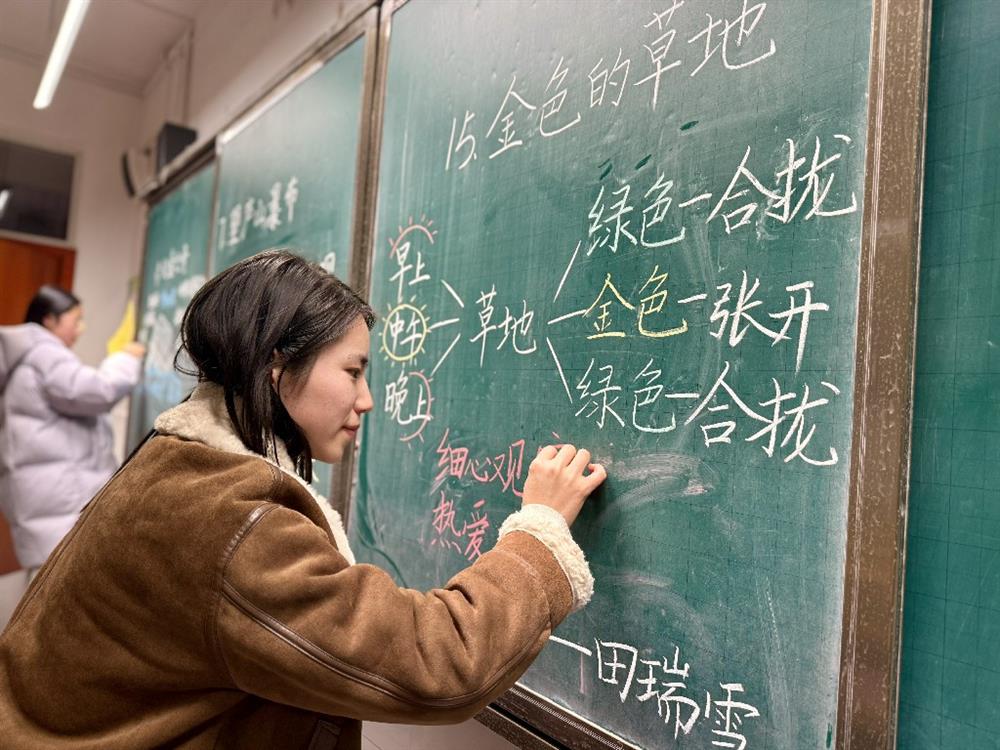 15.金色的草地
早上
中午
晚上
草地
绿色-合拢
金色-张开
绿色-合拢
细心观
热爱
一田瑞雪
庐山瀑布